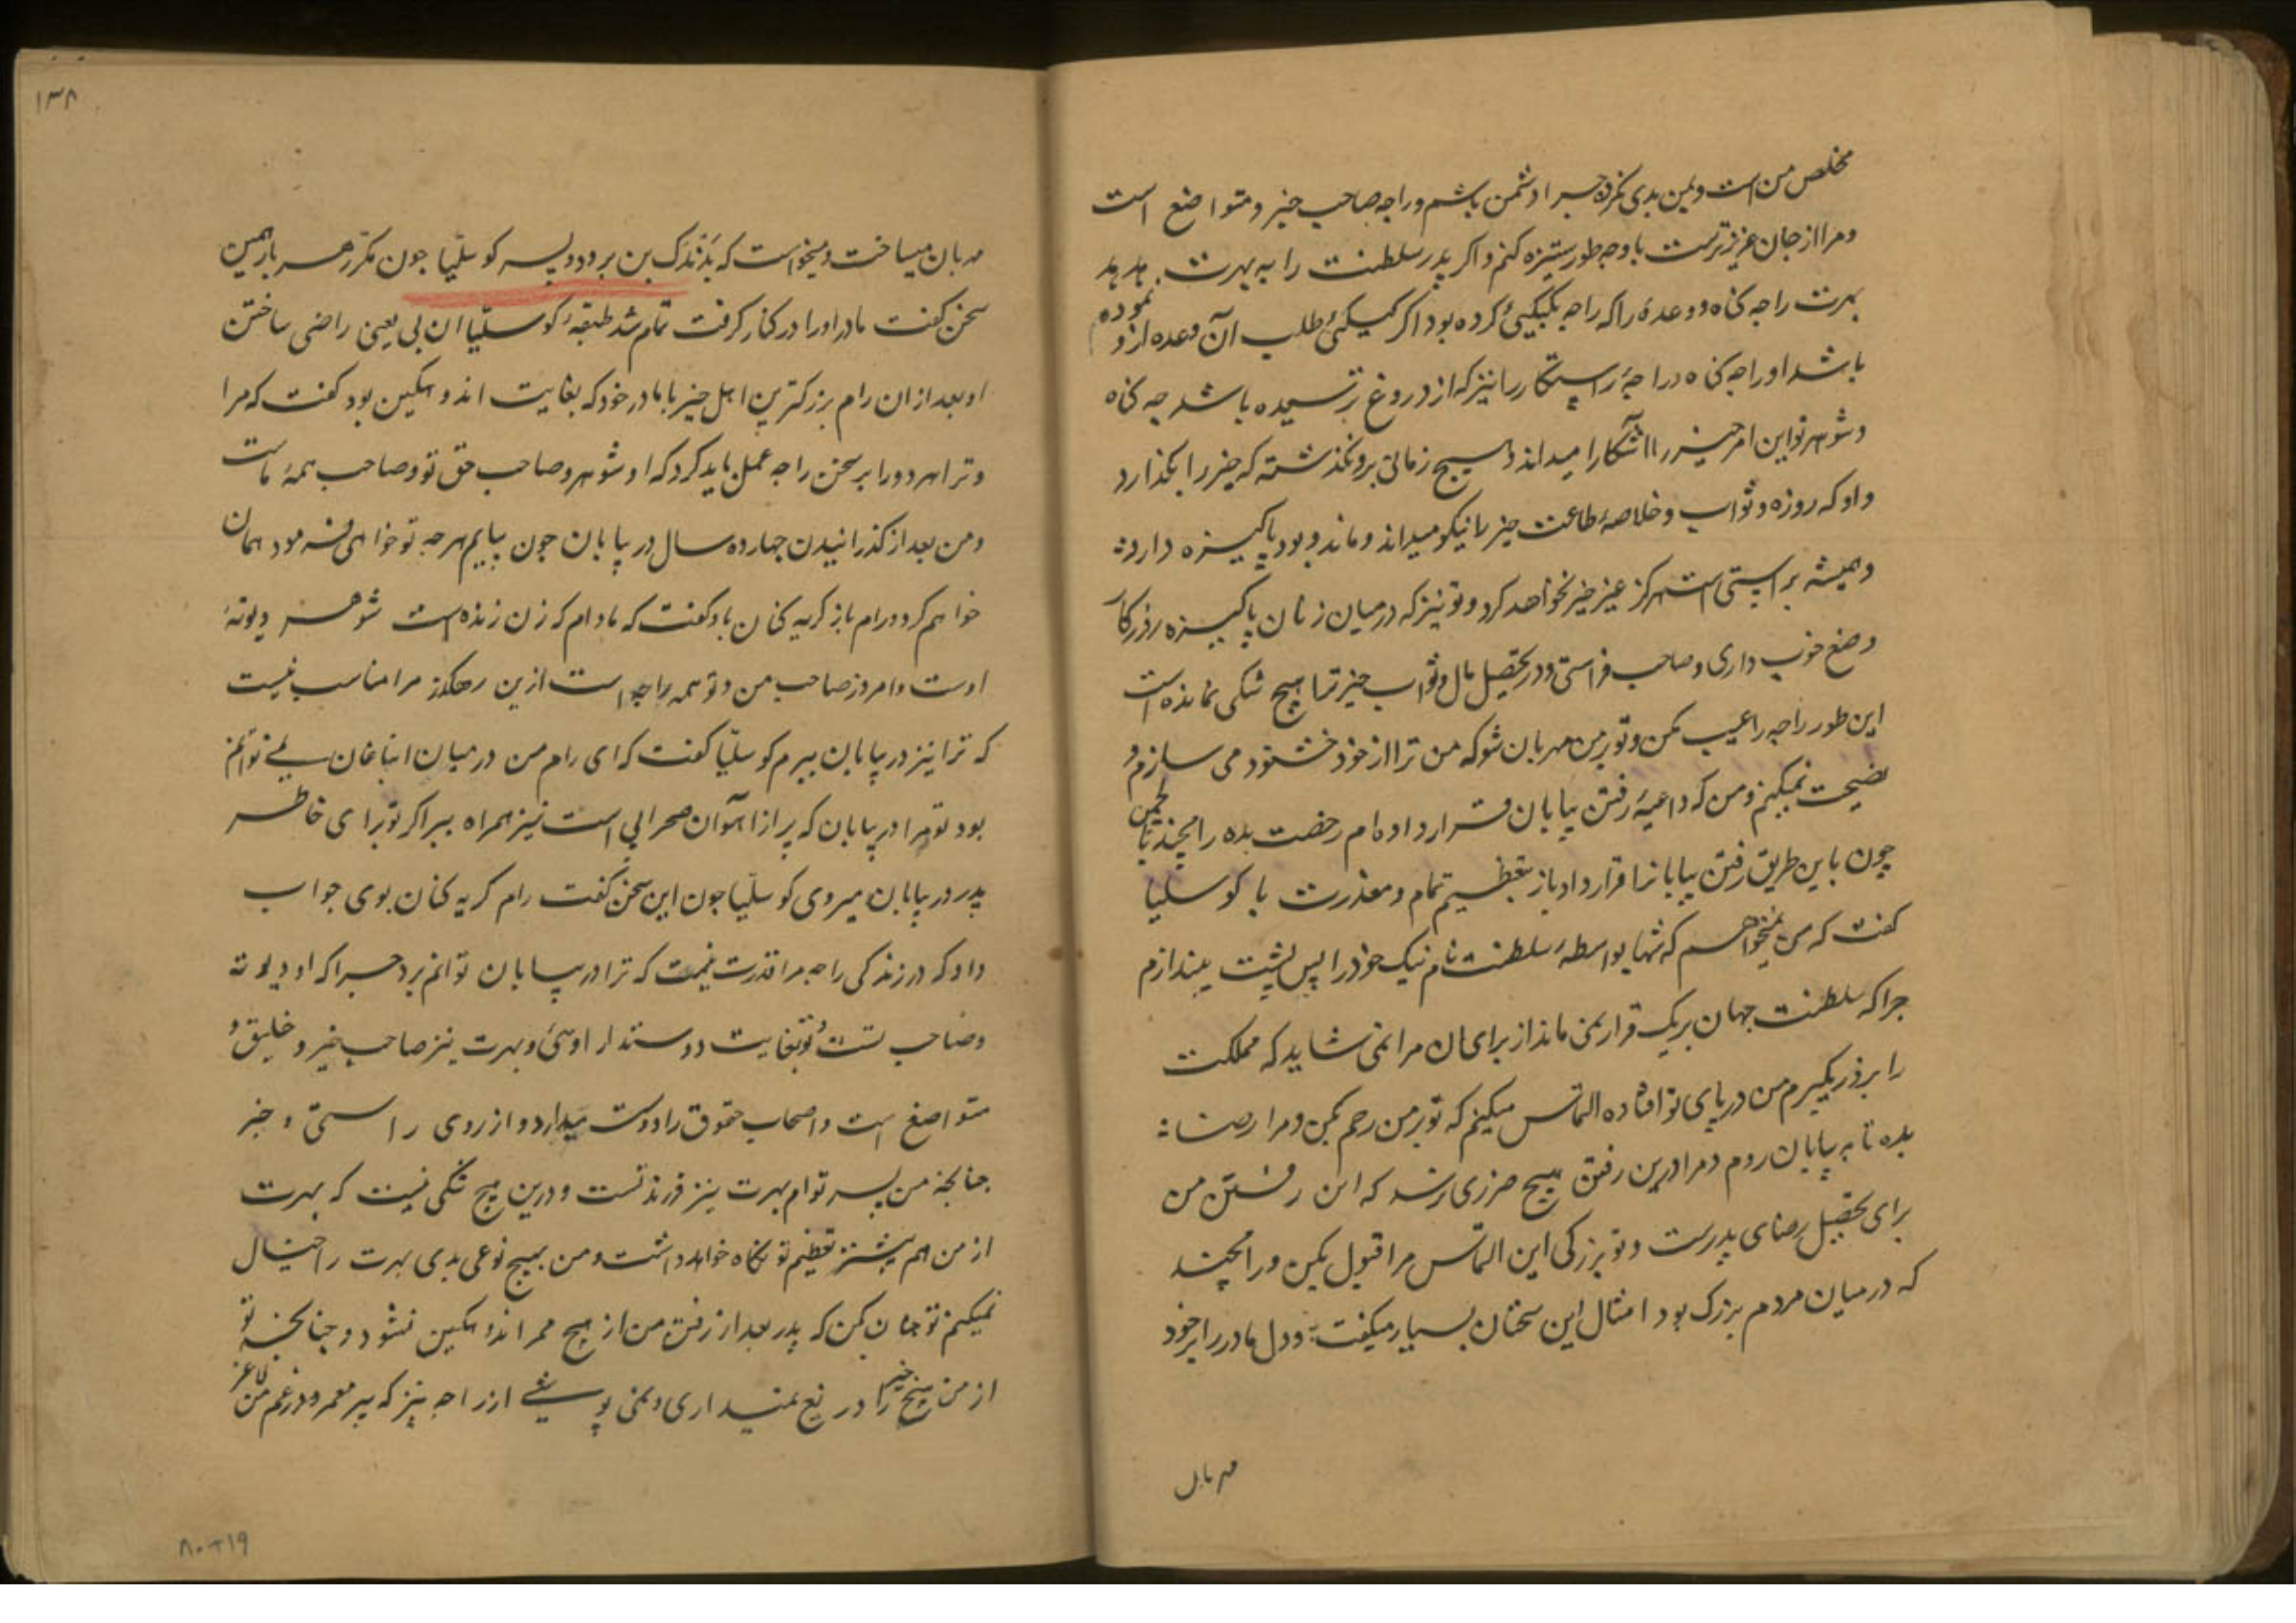 مخلص من است و بمن بدی نکرده چرا دشمن باشم و راجه صاحب خیر و متواضع است
و مرا از جان عزیزترست با وجه طور ستیزه کنم و اکر پدر سلطنت را به بهرت بدهد
بهرت را چه کناه و وعدهٔ را که راجه بکیکیئ کرده بود اکر کیکئ طلب آن وعده ازو نموده
باشد او را چه کناه و راجهٔ راستکار را نیز که از دروغ ترسیده باشد چه کناه
و شوهر تو این امر خیر را آشکارا میداند و هیچ زمانی برو نکذشته که خیر را بکذارد
و او که روزه و ثواب و خلاصهٔ طاعت خیر را نیکو میداند و ماند و بود پاکیزه دارد
و همیشه براستی است هرکز غیر خیر نخواهد کرد و تو نیز که درمیان زنان پاکیزه روزکار
وضع خوب داری و صاحب فراستی و در تحصیل مال و ثواب خیر ترا هیچ شکی نمانده است
این طور راجه را عیب مکن و تو بر من مهربان شو که من ترا از خود خشنود می سازم و
نصیحت نمیکنم و من که داعیهٔ رفتن بیابان قرار داده ام رخصت بده رامچند تا لچمن
چون باین طریق رفتن بیابانرا قرار داد باز بتعظیم تمام و معذرت با کوسلیا
کفت که من نمیخواهم که تنها بواسطهٔ سلطنت نام نیک خود را پس پشت بیندازم
چرا که سلطنت جهان بریک قرار نمی ماند از برای ان مرا نمی شاید که مملکت
را بزور بکیرم من در پای تو افتاده التماس میکنم که تو بر من رحم بکن و مرا رضا
بده تا به بیابان روم و مرا درین رفتن هیچ ضرری نرسد که این رفتن من
برای تحصیل رضای پدرست و تو بزرکی این التماس مرا قبول بکن و رامچند
که درمیان مردم بزرک بود امثال این سخنان بسیار میکفت و دل مادر را بر خود
مهربان
۱۳۸
مهربان میساخت و میخواست که بن برود و پسر کوسلیا چون مکرر هر بار همین
سخن کفت مادر او را در کنار کرفت تمام شد طبقهٔ کوسلیا ان بی یعنی راضی ساختن
او بعد از ان رام بزرکترین اهل خیر با مادر خود که بغایت اندوهکین بود کفت که مرا
و ترا هر دو را بر سخن راجه عمل باید کرد که او شوهر و صاحب حق تو و صاحب همهٔ ماست
و من بعد از کذرانیدن چهارده سال در بیابان چون بیایم هرچه تو خواهی فرمود همان
خواهم کرد و رام باز کریه کنان باو کفت که مادام که زن زنده است شوهر دیوتهٔ
اوست و امروز صاحب من و تو همه راجه است ازین رهکذر مرا مناسب نیست
که ترا نیز در بیابان ببرم کوسلیا کفت که ای رام من درمیان انباغان نمی توانم
بود تو مرا در بیابان که پر از آهوان صحرایی است نیز همراه ببر اکر تو برای خاطر
پدر در بیابان میروی کوسلیا چون این سخن کفت رام کریه کنان بوی جواب
داد که در زندکی راجه مرا قدرت نیست که ترا در بیابان توانم برد چرا که او دیوته
و صاحب تست و تو بغایت دوستدار اوئی و بهرت نیز صاحب خیر و خلیق و
متواضع است و اصحاب حقوق را دوست میدارد و از روی راستی و خیر
چنانچه من پسر توام بهرت نیز فرزند تست و درین هیچ شکی نیست که بهرت
از من هم بیشتر تعظیم تو نکاه خواهد داشت و من بهیچ نوعی بدی بهرت را خیال
نمیکنم تو چنان کن که پدر بعد از رفتن من از هیچ ممر اندوهکین نشود و چنانچه تو
از من هیچ خیر را دریغ نمیداری و نمی پوشی از راجه نیز که پیر معمر و در غم من لاغر
۸۰+۱۹